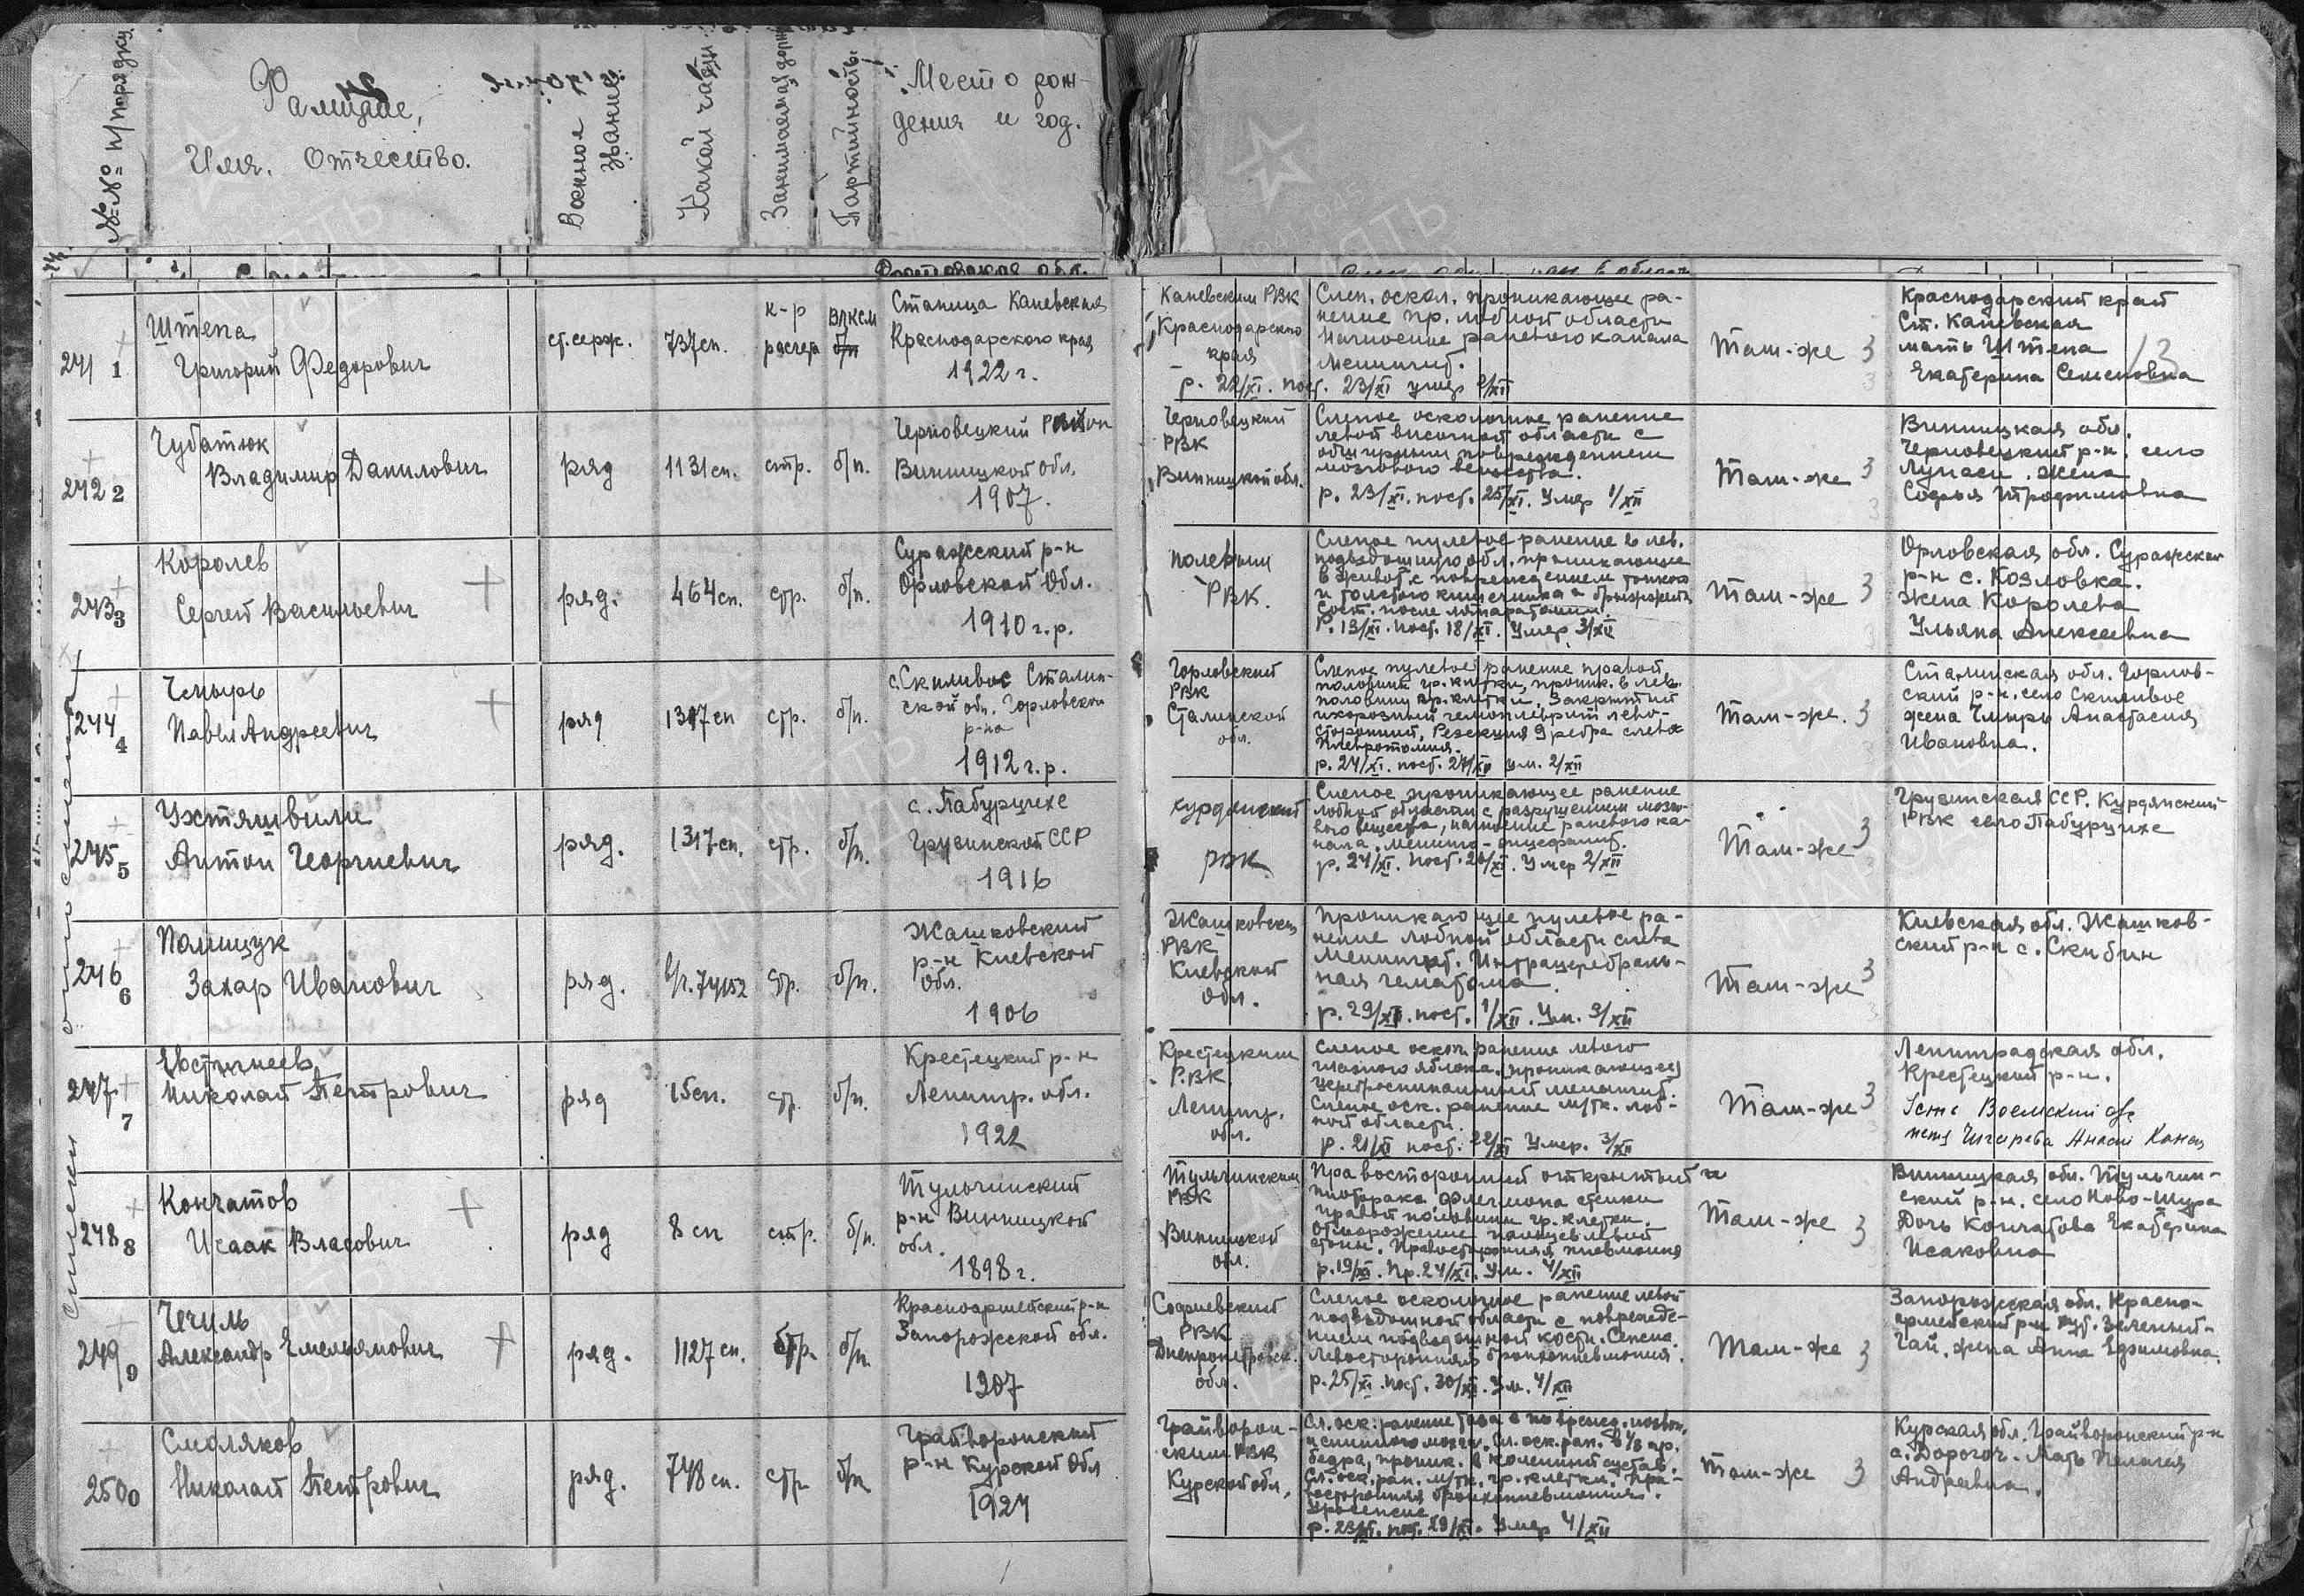 №№ п/порядку
Фамилие,
Имя. Отчество.
Военное звание
Какой части
Партийность
Место рож-
дения и год.
Ростовская обл.
241 1
Штепа
Григорий Федорович
ст. серж.
737 сп.
к-р
расчета
ВЛКСМ
б/п
Станица Каневская
Краснодарского края
1922 г.
Каневским РВК
Краснодарского
края
Слеп. оскол. проникающее ра-
нение пр. лобной области
Нагноение раневого канала
Менингит.
р. 22/XI. пост. 23/XI умер 2/XII
Там-же 3
Краснодарский край
Ст. Каневская
мать Штепа
Екатерина Семеновна
13
242 2
Чубатюк
Владимир Данилович
ряд
1131 сп.
стр.
б/п.
Черновецкий Район
Винницкой обл.
1907.
Черновецкий
РВК
Винницкой обл.
Слепое осколочное ранение
левой височной области с
обширным повреждением
мозгового вещества.
р. 23/XI. пост. 25/XI. Умер 1/XII
Там-же 3
Винницкая обл.
Черновецкий р-н, село
жена
Софья Трофимовна
243 3
Королев
Сергей Васильевич
ряд.
464 сп.
стр.
б/п.
Суражский р-н
Орловской Обл.
1910 г.р.
Полевым
РВК.
Слепое пулевое ранение в лев.
подвздошную обл. проникающее
в живот с повреждением тонкого
и толстого кишечника и брыжжейки
Сост. после лапаратомии.
Р. 13/XI. пост. 18/XI. Умер 3/XII
Там-же 3
Орловская обл. Суражский
р-н с. Козловка.
жена Королева
Ульяна Алексеевна
244 4
Чмырь
Павел Андреевич
ряд
1317 сп
стр.
б/п.
с. Скиливое Сталин-
ской обл. Горловского
р-на
1912 г.р.
Горловский
РВК
Сталинской
обл.
Слепое пулевое ранение правой
половины гр. клетки, проник. в лев.
половину гр. клетки. Закрытый
ихорозный гемоплеврит лево-
сторонний, Резекция 9 ребра слева
Плевротомия.
р. 24/XI. пост. 24/XI ум. 2/XII
Там-же. 3
Сталинская обл. Горлов-
ский р-н. село Скиливое
жена Чмырь Анастасия
Ивановна.
245 5
Ухтяшвили
Антон Георгиевич
ряд.
1317 сп.
стр.
б/п.
с. Пабурцихе
Грузинской ССР
1916
Курдянский
РВК
Слепое проникающее ранение
лобной области с разрушением мозго-
вого вещества, нагноение раневого ка-
нала. Менинго-энцефалит.
р. 24/XI. пост. 26/XI. Умер 2/XII
Там-же 3
Грузинская ССР. Курдянский
РВК село Пабурцихе
246 6
Полищук
Захар Иванович
ряд.
стр.
б/п.
Жашковский
р-н Киевской
Обл.
1906
Жашковским
РВК
Киевской
обл.
Проникающее пулевое ра-
нение лобной области слева
Менингит. Интрацеребраль-
ная гематома.
р. 29/XI. пост. 1/XII. Ум. 3/XII
Там-же 3
Киевская обл. Жашков-
ский р-н с. Скибин
247 7
Евстигнеев
Николай Петрович
ряд
15 сп.
стр.
б/п.
Крестецкий р-н
Ленингр. обл.
1922
Крестецким
РВК
Ленингр.
обл.
Слепое оскол. ранение левого
глазного яблока, проникающее
Цереброспинальный менингит.
Слепое оск. ранение м/тк. лоб-
ной области.
р. 21/XI пост. 22/XI Умер. 3/XII
Там-же 3
Ленинградская обл.
Крестецкий р-н.
248 8
Кончатов
Исаак Власович
ряд
8 сп
стр.
б/п.
Тульчинский
р-н Винницкой
обл.
1898 г.
Тульчинским
РВК
Винницкой
обл.
Правосторонний открытый
пиоторакс. Флегмона стенки
правой половины гр. клетки.
Отморожение пальцев левой
стопы. Правосторонняя пневмония
р. 19/XI. Пр. 24/XI. Ум. 4/XII
Там-же 3
Винницкая обл. Тульчин-
ский р-н. село Ново-Шура
Дочь Кончатова Екатерина
Исаковна
249 9
Чечиль
Александр Емельянович
ряд.
1127 сп.
стр.
б/п.
Красноармейский р-н
Запорожской обл.
1907
Софиевский
РВК
Днепропетровск.
обл.
Слепое осколочное ранение левой
подвздошной области с поврежде-
нием подвздошной кости. Сепсис.
Левосторонняя бронхопневмония.
р. 25/XI. пост. 30/XI. Ум. 4/XII
Там-же 3
Запорожская обл. Красно-
армейский р-н хут. Зеленый-
Гай, жена Анна Ефимовна.
250 0
Смоляков
Николай Петрович
ряд.
748 сп.
стр
б/п
Грайворонский
р-н Курской Обл
1924
Грайворон-
ским РВК
Курской обл,
Сл. оск. ранение таза с поврежд. позвон.
и спинного мозга. Сл. оск. ран. в/3 пр.
бедра, проник. в коленный сустав.
Сл. оск. ран. м/тк. гр. клетки. Пра-
восторонняя бронхопневмония.
Уросепсис
р. 23/XI. пост. 29/XI. Умер 4/XII
Там-же 3
Курская обл. Грайворонский р-н
с. Дорогощ. Мать Пелагея
Андреевна.